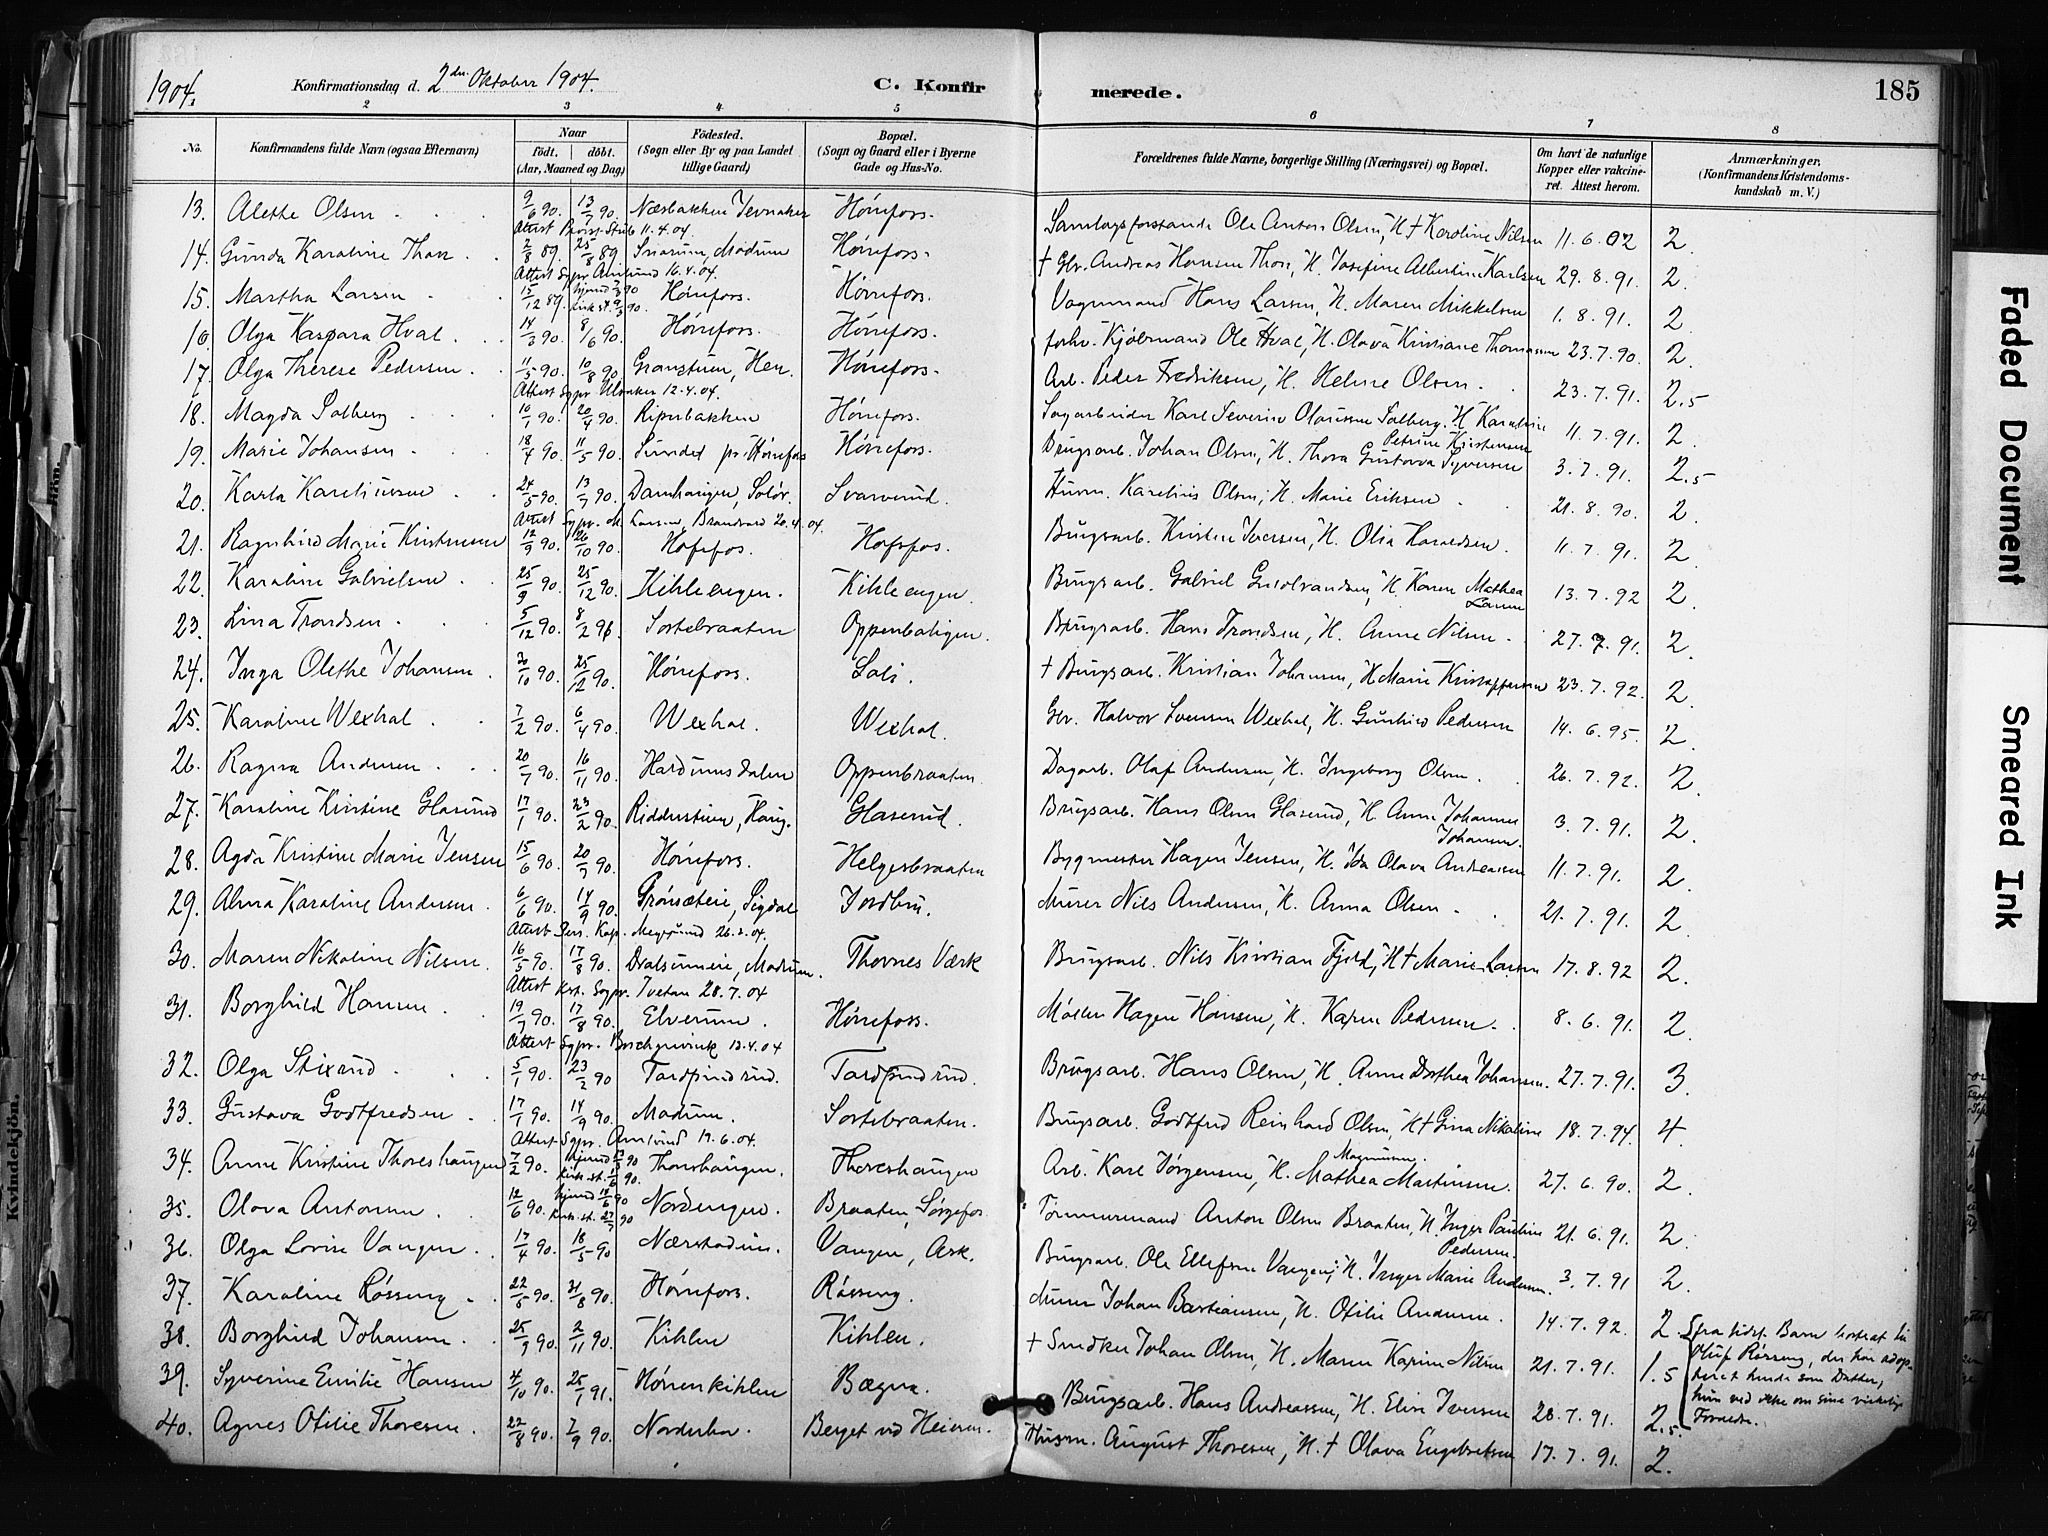 1904. Konfirmationsdag d. 2den Oktober 1904. C. Konfirmerede. 185
2 3 4 5 6 7 8
No. Konfirmandens fulde Navn (ogsaa Efternavn) Naar födt. döbt. (Aar, Maaned og Dag) Födested. (Sogn eller By og paa Landet tillige Gaard) Bopæl. (Sogn og Gaard eller i Byerne Gade og Hus-No. Forældrenes fulde Navne, borgerlige Stilling (Næringsvei) og Bopæl. Om havt de naturlige Kopper eller vakcineret. Attest herom. Anmærkninger. (Konfirmandens Kristendomskundskab m. V.)
13. Alette Olsen 9/6 90. 13/7 90. Næsbakken Jevnaker Hönefos. Ole Anton Olsen, H. † Karoline Nilsen 11.6.02 2.
Attest 11.4.04.
14. Gunda Karoline Thon 2/8 89. 25/8 89 Snarum, Modum Hönefos. † Gbr. Andreas Hansen Thon, H. Josefine Albertine Karlsen 29.8.91. 2.
Attest Sgpr. Amlund 16.4.04.
15. Martha Larsen 15/12 89. Hönefos. Hönefos. Vognmand Hans Larsen, H. Maren Mikkelsen 1.8.91. 2
16. Olga Kaspara Hval 14/3 90. 8/6 90. Hönefos. Hönefos. forhv. Kjöbmand Ole Hval, H. Olava Kristiane Thomassen 23.7.90. 2.
17. Olga Therese Pedersen 11/5 90. 10/8 90. Hen. Hönefos. Arb. Peder Fredriksen, H. Helene Olsen 23.7.91. 2.5
Attest Sgpr. Ulnaker 12.4.04.
18. Magda Solberg 10/1 90. 20/4 90. Riperbakken Hönefos. Sagarbeider Karl Severin Olaussen Solberg, H. Karoline Petrine Kristensen 11.7.91. 2.
19. Marie Johansen 18/4 90. 11/5 90. Sundet pr. Hönefos Hönefos. Brugsarb. Johan Olsen, H. Thora Gustava Syversen 3.7.91. 2.5
20. Karla Kareliussen 24/5 90. 13/7 90. Damhaugen, Solör. Svarverud. Husm. Karelius Olsen, H. Marie Eriksen 21.8.90. 2.
Attest Sgpr. M. Larsen, Brandval 20.4.04.
21. Ragnhild Marie Kristensen 12/9 90. 26/10 90. Hofsfos. Hofsfos. Brugsarb. Kristen Iversen, H. Olia Haraldsen. 11.7.91. 2
22. Karoline Gabrielsen 25/9 90. 25/12 90. Kihleengen. Kihleengen. Brugsarb. Gabriel Gulbrandsen, H. Karen Mathea Larsen 13.7.92 2.
23. Lina Trondsen 5/12 90. 8/2 91. Sortebraaten Oppenbatigen. Brugsarb. Hans Trondsen, H. Anne Nilsen. 27.7.91. 2.
24. Inga Olethe Johansen 7/10 90. 25/12 90. Hönefos. Soli. † Brugsarb. Kristian Johansen, H. Marie Kristoffersen 23.7.92. 2.
25. Karoline Wexhal 7/2 90. 6/4 90. Wexhal. Wexhal. Gbr. Halvor Svensen Wexhal, H. Gunhild Pedersen 14.6.95. 2.
26. Ragna Andersen 20/7 90. 16/11 90. Hardumsdalen Oppenbraaten. Dagarb. Olaf Andersen, H. Ingeborg Olsen. 26.7.92. 2.
27. Karoline Kristine Glaserud 17/1 90. 23/2 90. Haug. Glaserud. Brugsarb. Hans Olsen Glaserud, H. Anne Johanne Johansen. 3.7.91. 2.
28. Agda Kristine Marie Jensen 15/6 90. 20/7 90. Hönefos. Helgesbraaten Bygmester Hagen Jensen, H. Ida Olava Andreassen 11.7.91. 2.
29. Alma Karoline Andersen. 6/6 90. 14/9 90. Grönsæteie, Sigdal Jordbru. Murer Nils Andersen, H. Anna Olsen 21.7.91. 2.
Attest Pers. Kap. 26.2.04.
30. Maren Nikoline Nilsen. 16/5 90. 17/8 90. Modum. Thornes Værk Brugsarb. Nils Kristian Fjeld, H. † Marie Larsen 17.8.92 2.
Attest Kst. Sogpr. Tvetan 28.7.04
31. Borghild Hansen. 19/7 90. 17/8 90. Elverum. Hönefos. Möller Hagen Hansen, H. Karen Pedersen. 8.6.91. 2.
Attest Sgpr. Borchgrevink 12.4.04
32. Olga Stixrud 5/1 90. 23/2 90 Tandberud. Tandberud. Brugsarb. Hans Olsen, H. Anne Dorthea Johansen. 27.7.91. 3.
33. Gustava Godtfredsen 17/1 90. 14/9 90. Modum. Sortebraaten. Brugsarb. Godtfred Reinhard Olsen, H. † Gina Nikoline Magnussen. 18.7.94. 4.
Attest Sgpr. Amlund 17.6.04.
34. Anne Kristine Thoreshaugen 7/2 90. Thoreshaugen. Thoreshaugen Arb. Karl Jörgensen, H. Mathea Martinsen. 27.6.90. 2.
35. Olava Antonsen 12/6 90. Nordengen. Braaten, Sörgefos Tömmermand Anton Olsen Braaten, H. Inger Pauline Pedersen. 21.6.91. 2.
36. Olga Lovise Vangen 17/4 90. 18/5 90 Nærstadeie. Vangen, Ask. Brugsarb. Ole Ellefsen Vangen, H. Inger Marie Andersen. 3.7.91 2.
37. Karoline Rösseng 22/5 90. 31/8 90. Hönefos. Rösseng. Murer Johan Bastiansen, H. Otilie Andersen. 14.7.92. 2.
38. Borghild Johansen. 25/9 90. 2/11 90. Kihlen Kihlen. † Snedker Johan Olsen, H. Maren Karine Nilsen 21.7.91. 1.5
39. Syverine Emilie Hansen 4/10 90. 25/1 91. Hönenkihlen Bægna. Brugsarb. Hans Andreassen, H. Elise Iversen 28.7.91. 2.5.
fra lidet Barn hos Oluf Rösseng, der har adopteret hende som Datter, hun ved ikke om sine virkelige Forældre.
40. Agnes Otilie Thoresen. 22/8 90. 7/9 90. Norderhov. Berget ved Heieren. Husm. August Thoresen, H. † Olava Engebretsen 17.7.91. 2.
Faded Document
Smeared Ink
Kvindekjön.